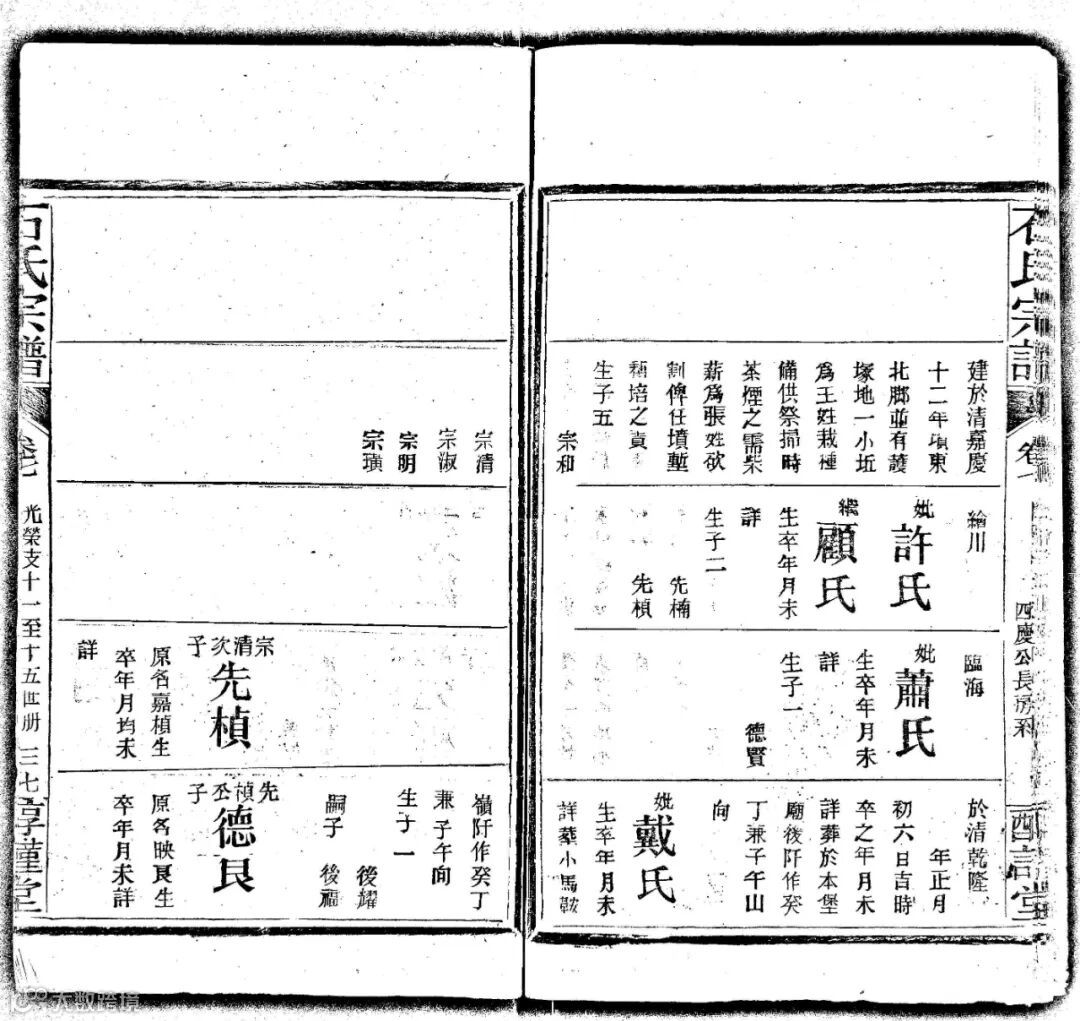 石氏宗譜
卷七
四慶公長房系
建於清嘉慶
十二年項東
北鄰並有護
塚地一小坵
為王姓栽種
備供祭掃時
茶煙之需柴
薪為張姓砍
割俾任墳塹
生子五
宗和
繪川
妣許氏
繼顧氏
生卒年月未
詳
生子二
先楠
先楨
臨海
妣蕭氏
生卒年月未
詳
生子一
德賢
於清乾隆
年正月
初六日吉時
卒之年月未
詳葬於本堡
廟後阡作癸
丁兼子午山
向
妣戴氏
生卒年月未
詳葬小馬鞍
宗清
宗淑
宗明
宗璜
宗清次子
先楨
原名嘉楨生
卒年月均未
詳
嶺阡作癸丁
兼子午向
生子一
後耀
嗣子 後福
德良
原名映良生
卒年月未詳
石氏宗譜
卷七
光榮支十一至十五世册
三七
惇謹堂
大數跨境